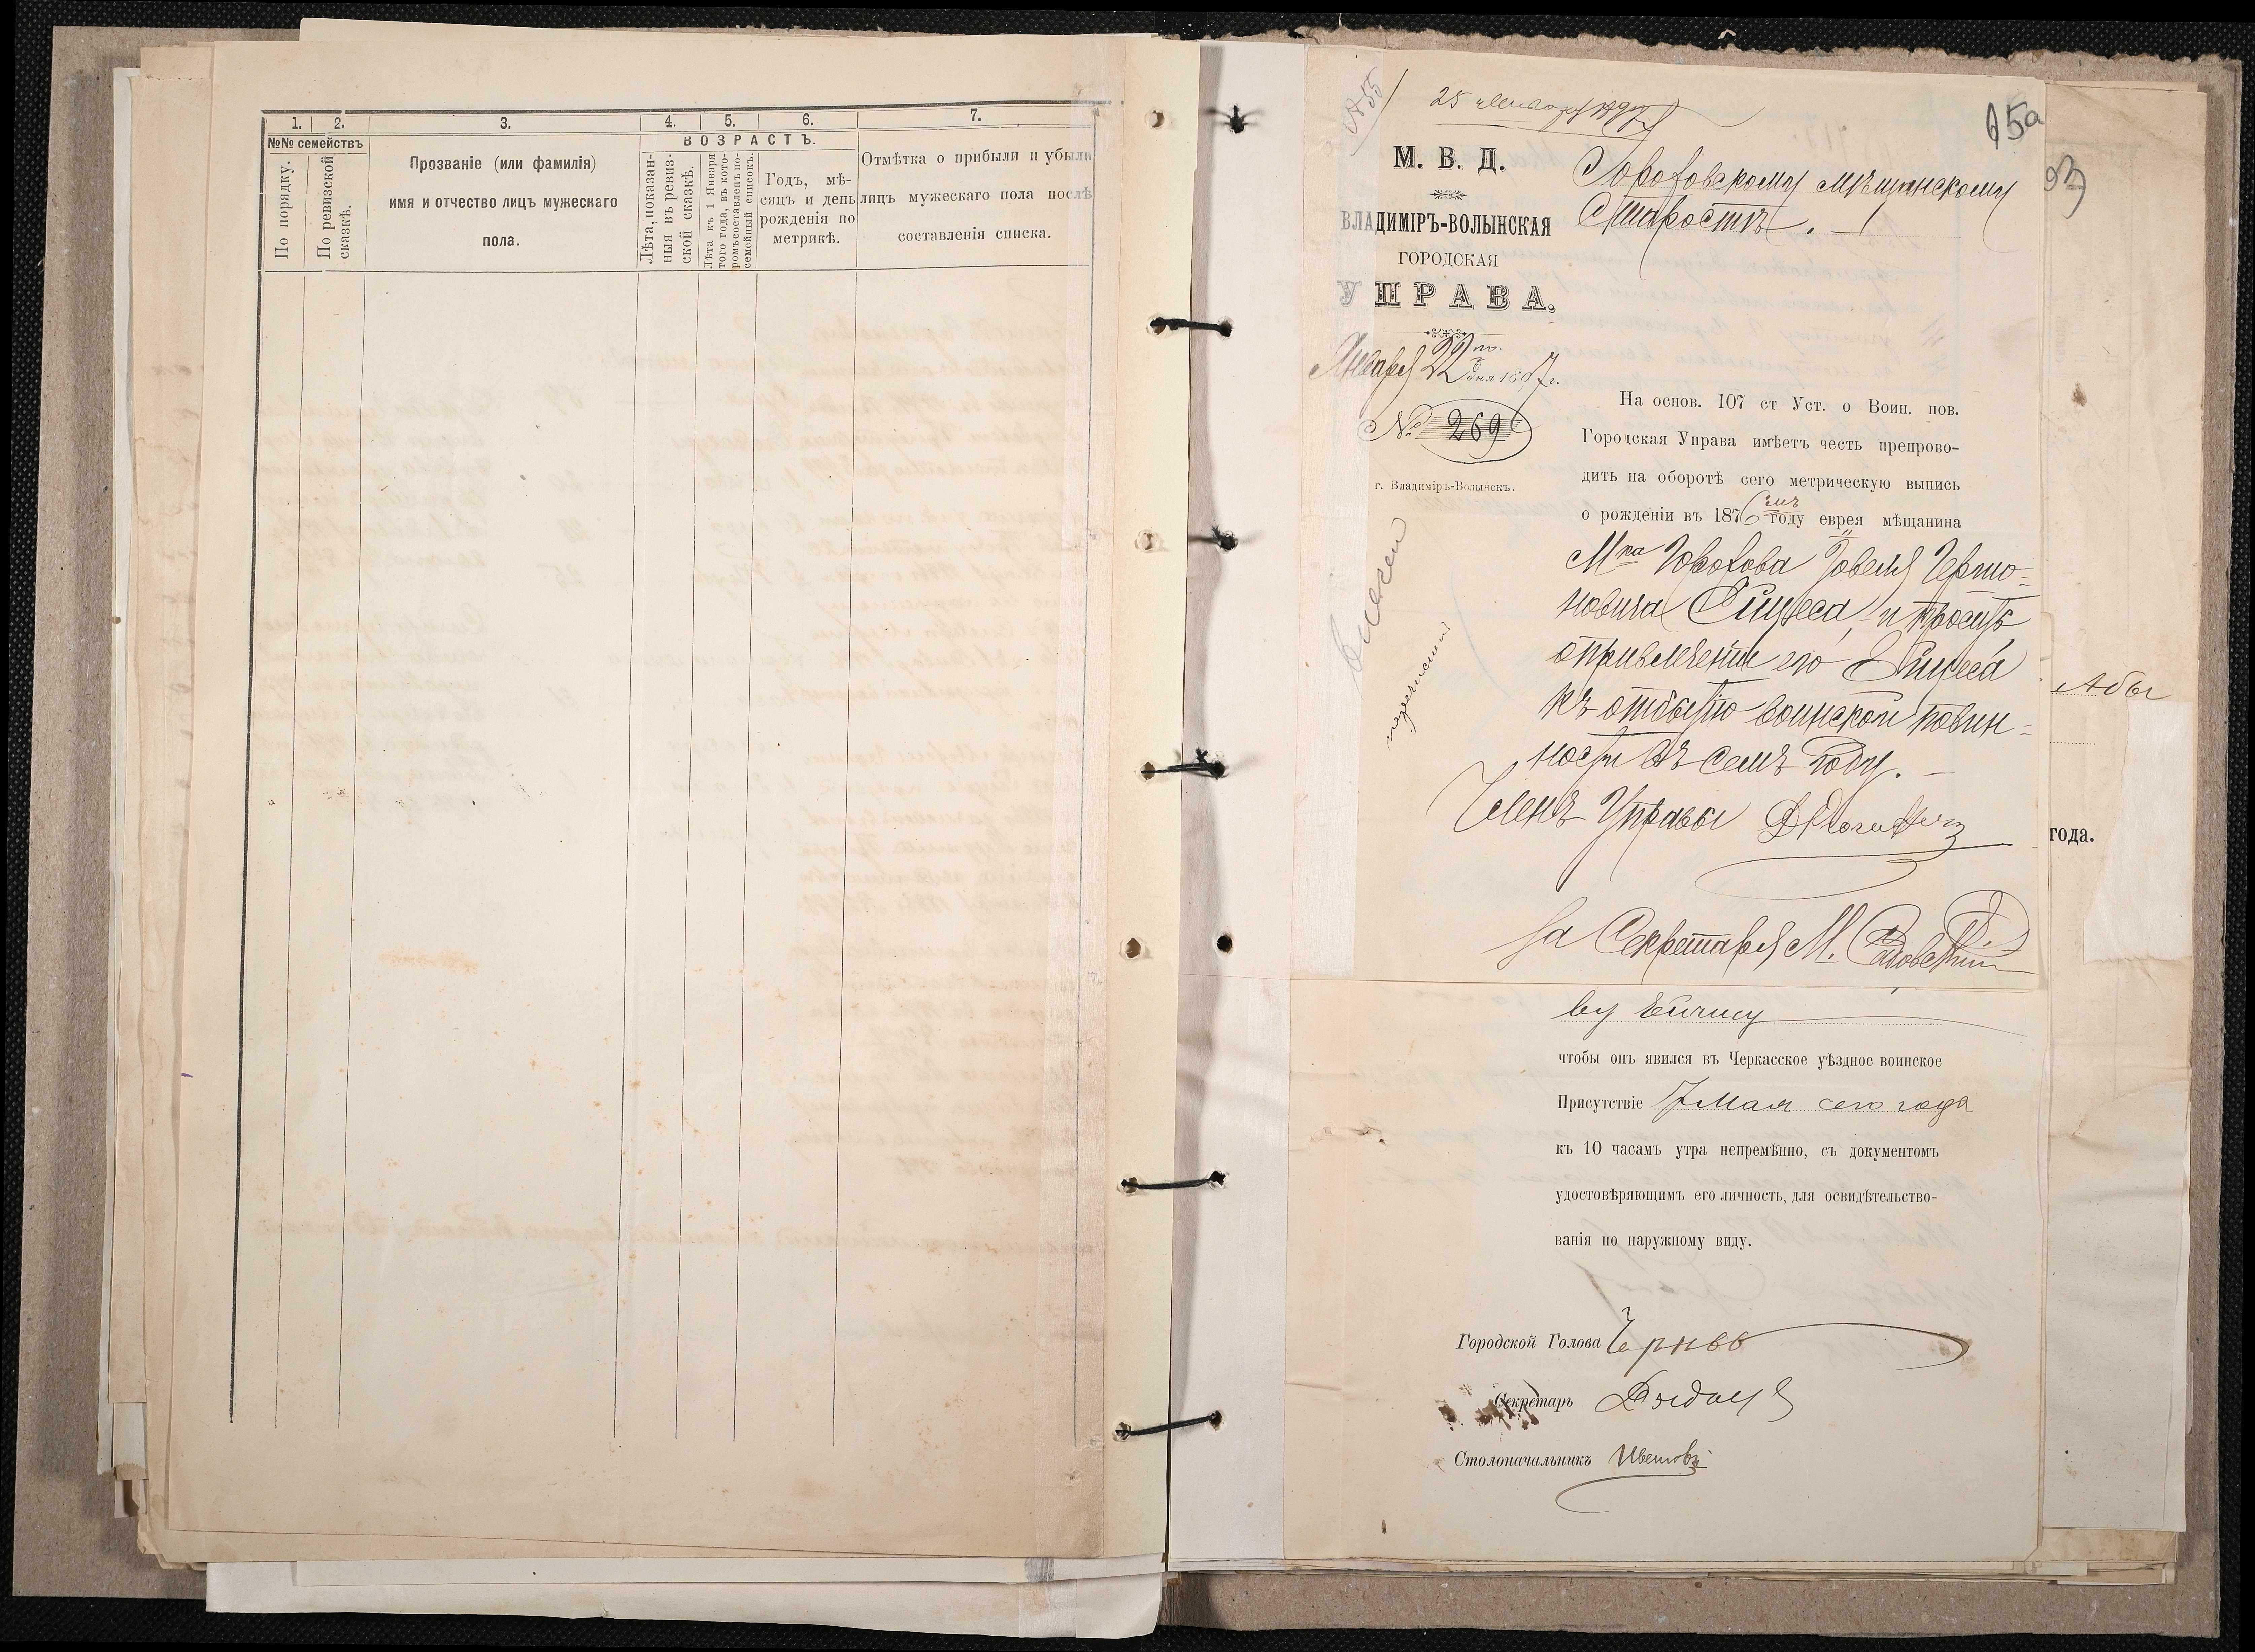 1. 2. 3. 4. 5. 6. 7.
№№ семействъ
По порядку.
По ревизской сказкѣ.
Прозваніе (или фамилія)
имя и отчество лицъ мужескаго
пола.
ВОЗРАСТЪ.
Лѣта, показан-
ныя въ ревиз-
ской сказкѣ.
Лѣта къ 1 Января
того года, въ кото-
ромъ составленъ по-
семейный списокъ.
Годъ, мѣ-
сяцъ и день
рожденія по
метрикѣ.
Отмѣтка о прибыли и убыли
лицъ мужескаго пола послѣ
составленія списка.
15а
М. В. Д.
ВЛАДИМІРЪ-ВОЛЫНСКАЯ
ГОРОДСКАЯ
УПРАВА.
Января 22 дня 1897 г.
№ 269
г. Владиміръ-Волынскъ.
Гороховскому мѣщанскому
Старостѣ.
На основ. 107 ст. Уст. о Воин. пов.
Городская Управа имѣетъ честь препрово-
дить на оборотѣ сего метрическую выпись
о рожденіи въ 1876 году еврея мѣщанина
М-ка Горохова Іовеля Гершо-
новича и просить
о привлеченіи его
къ отбытію воинской повин-
ности въ семъ году.
Членъ Управы
За Секретаря М.
чтобы онъ явился въ Черкасское уѣздное воинское
Присутствіе 7 Мая сего года
къ 10 часамъ утра непремѣнно, съ документомъ
удостовѣряющимъ его личность, для освидѣтельство-
ванія по наружному виду.
Городской Голова
Секретарь
Столоначальникъ
Абы
года.